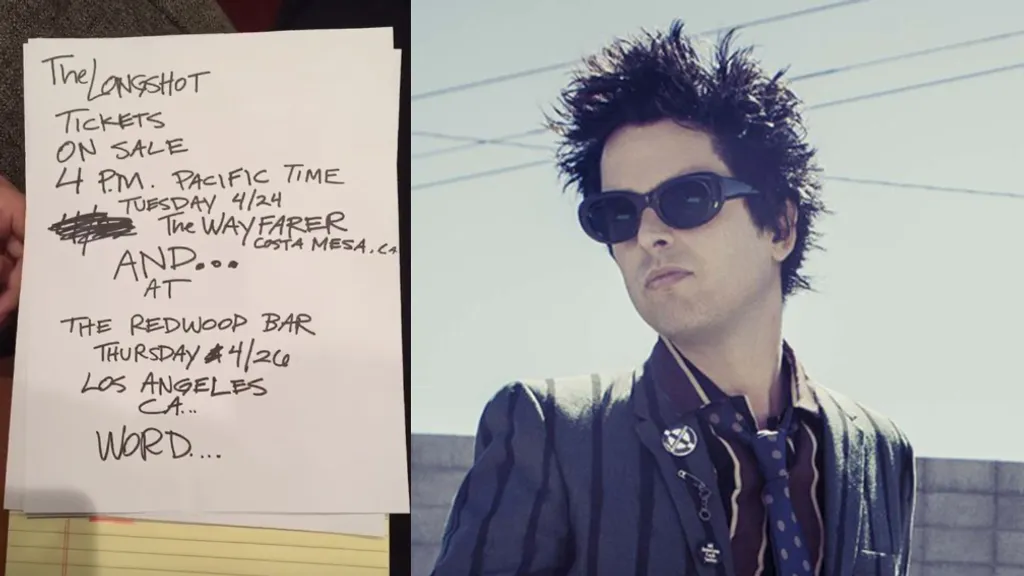 The LONGSHOT
TICKETS
ON SALE
4 P.M. PACIFIC TIME
TUESDAY 4/24
The WAYFARER
COSTA MESA. CA
AND...
AT
THE REDWOOD BAR
THURSDAY 4/26
LOS ANGELES
CA...
WORD....